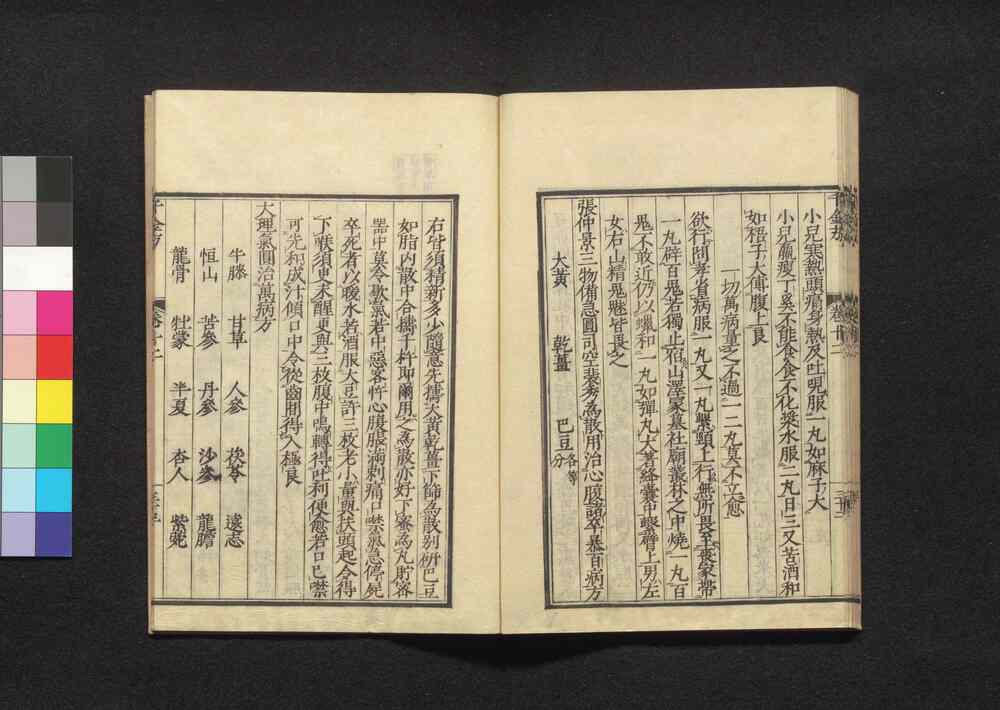 小兒寒熱頭痛身熱及吐哯服一丸如麻子大
小兒羸瘦丁奚不能食食不化漿水服二丸日三又苦酒和
如梧子大傅腹上良
一切萬病量之不過一二丸莫不立愈
欲行問孝省病服一丸又一丸繫頸上行無所畏至喪家帶
一丸辟百鬼若獨止宿山澤冢墓社廟叢林之中燒一丸百
鬼不敢近仍以蠟和一丸如彈丸大著絳囊中繫臂上男左
女右山精鬼魅皆畏之
張仲景三物備急圓司空裴秀為散用治心腹諸卒暴百病方
大黃 乾薑 巴豆各等分
右皆須精新多少隨意先擣大黃乾薑下篩為散別研巴豆
如脂內散中合擣千杵即爾用之為散亦好下蜜為丸貯密
器中莫令歇氣若中惡客忤心腹脹滿刺痛口噤氣急停尸
卒死者以暖水若酒服大豆許三枚老小量與扶頭起令得
下喉須臾未醒更與三枚腹中鳴轉得吐利便愈若口已噤
可先和成汁傾口中令從齒間得入極良
大理氣圓治萬病方
牛膝 甘草 人參 茯苓 遠志
恒山 苦參 丹參 沙參 龍膽
龍骨 牡蒙 半夏 杏人 紫菀